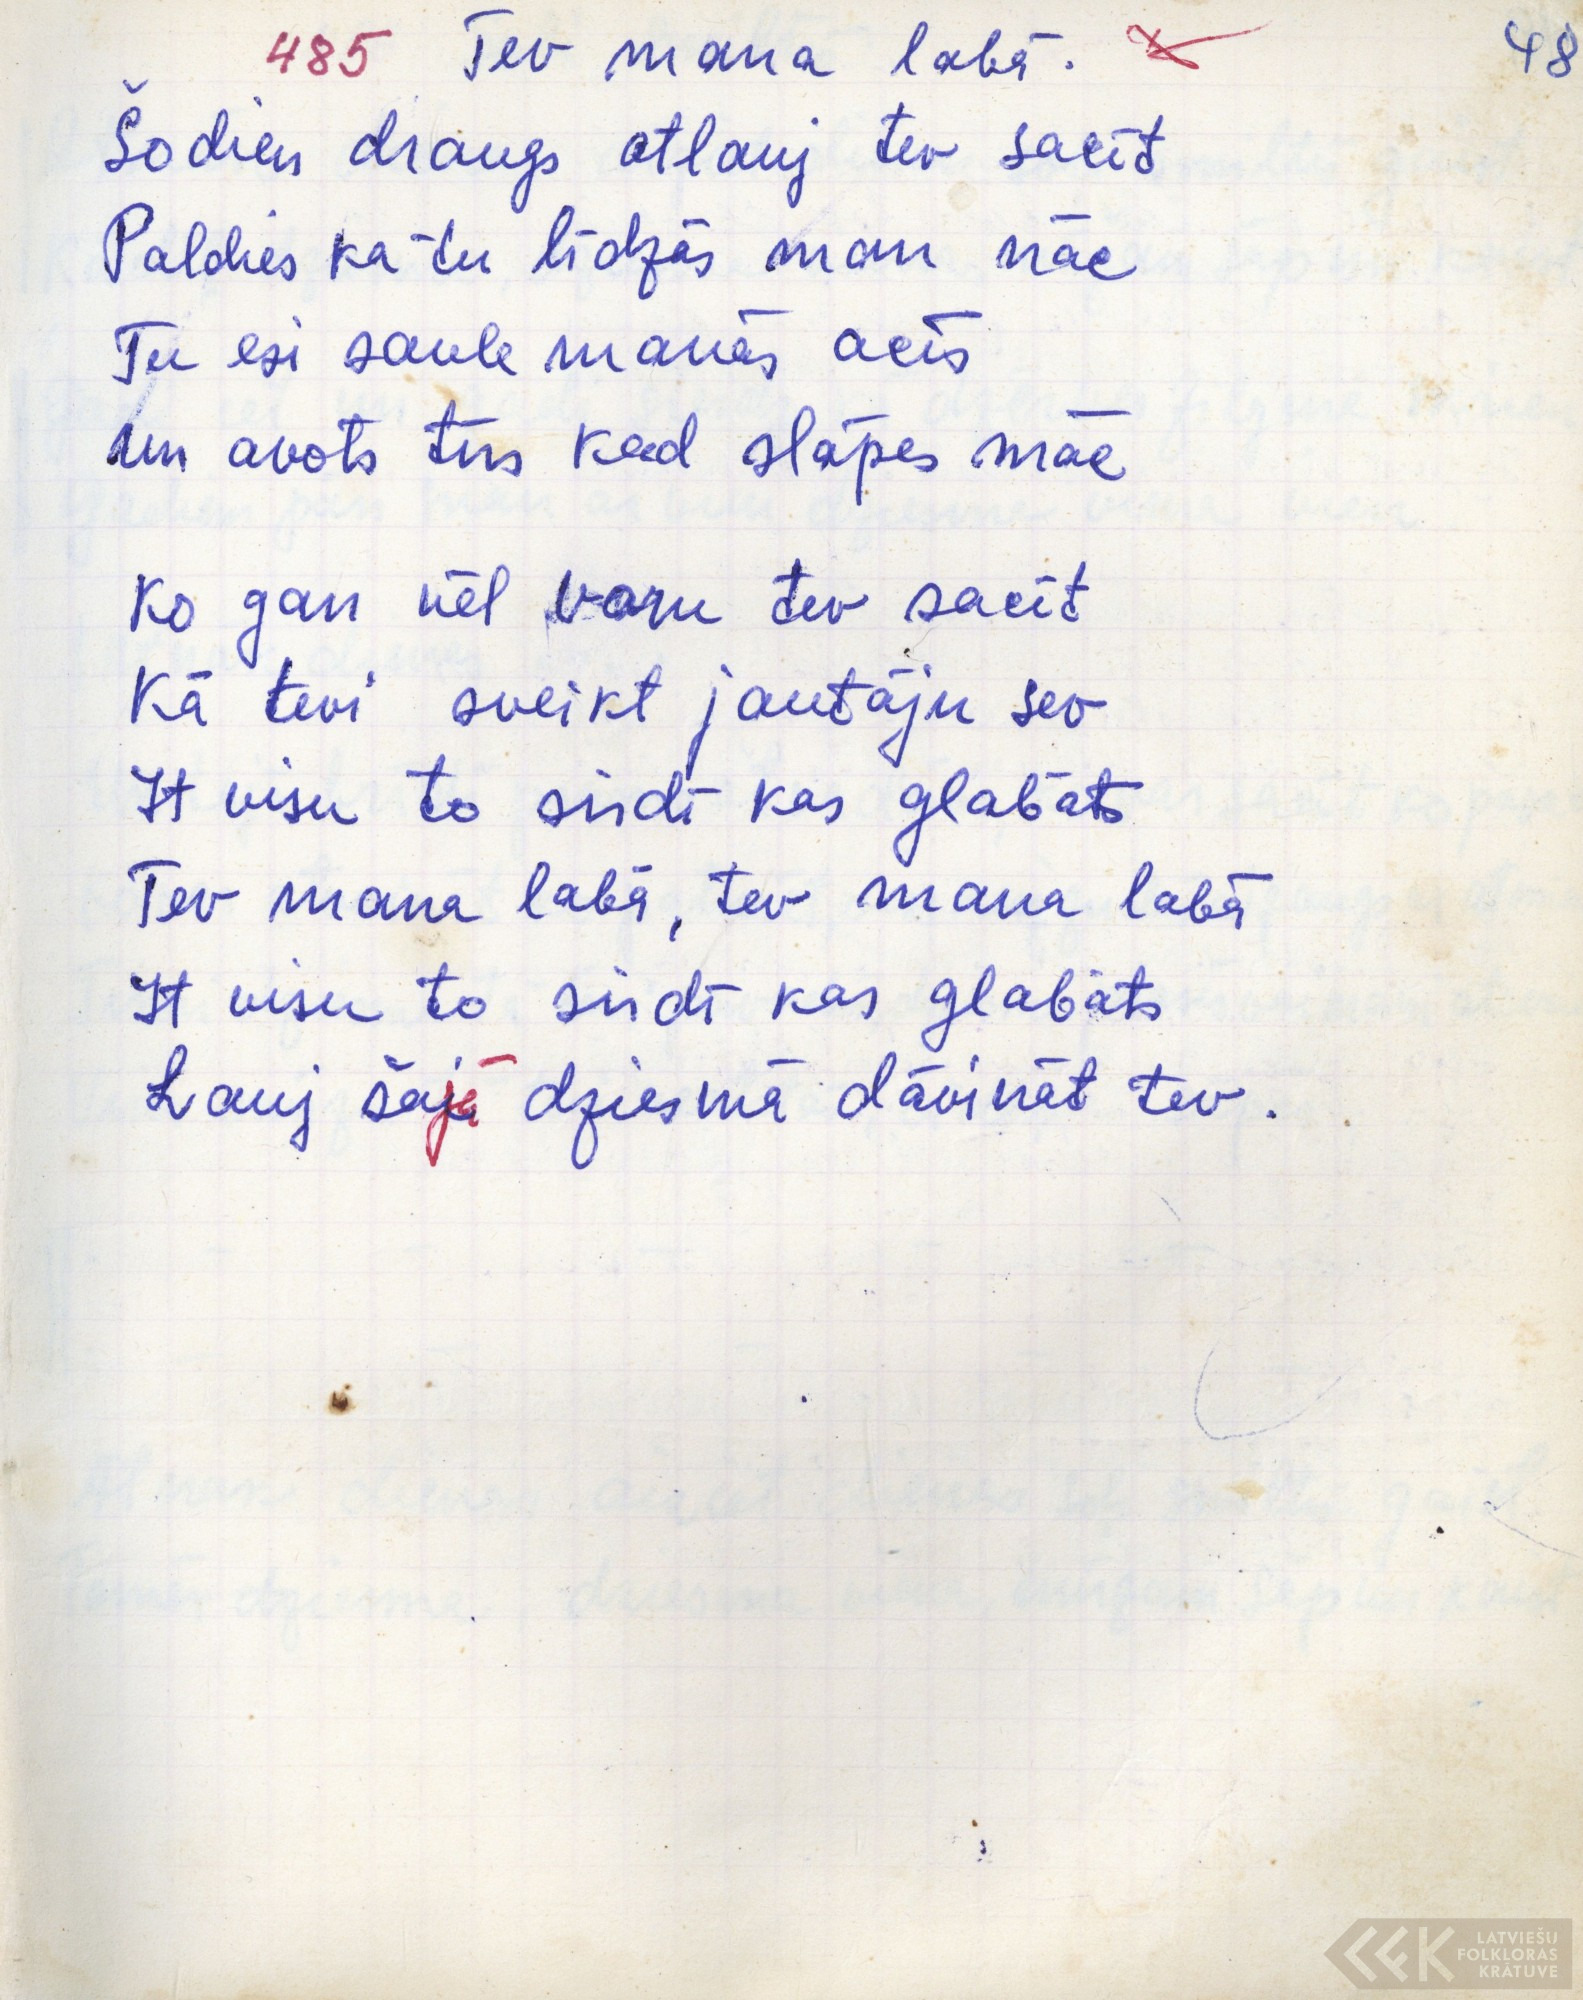 485 Tev mana labā. 48
Šodien draugs atlauj tev sacīt
Paldies ka tu līdzās man nāc
Tu esi saule manās acīs
un avots tīrs kad slāpes māc
Ko gan vēl varu tev sacīt
Kā tevi sveikt jautāju sev
It visu to sirdī kas glabāts
Tev mana labā, tev mana labā
It visu to sirdī kas glabāts
Lauj šajā dziesmā dāvināt tev.
LATVIEŠU
FOLKLORAS
KRĀTUVE